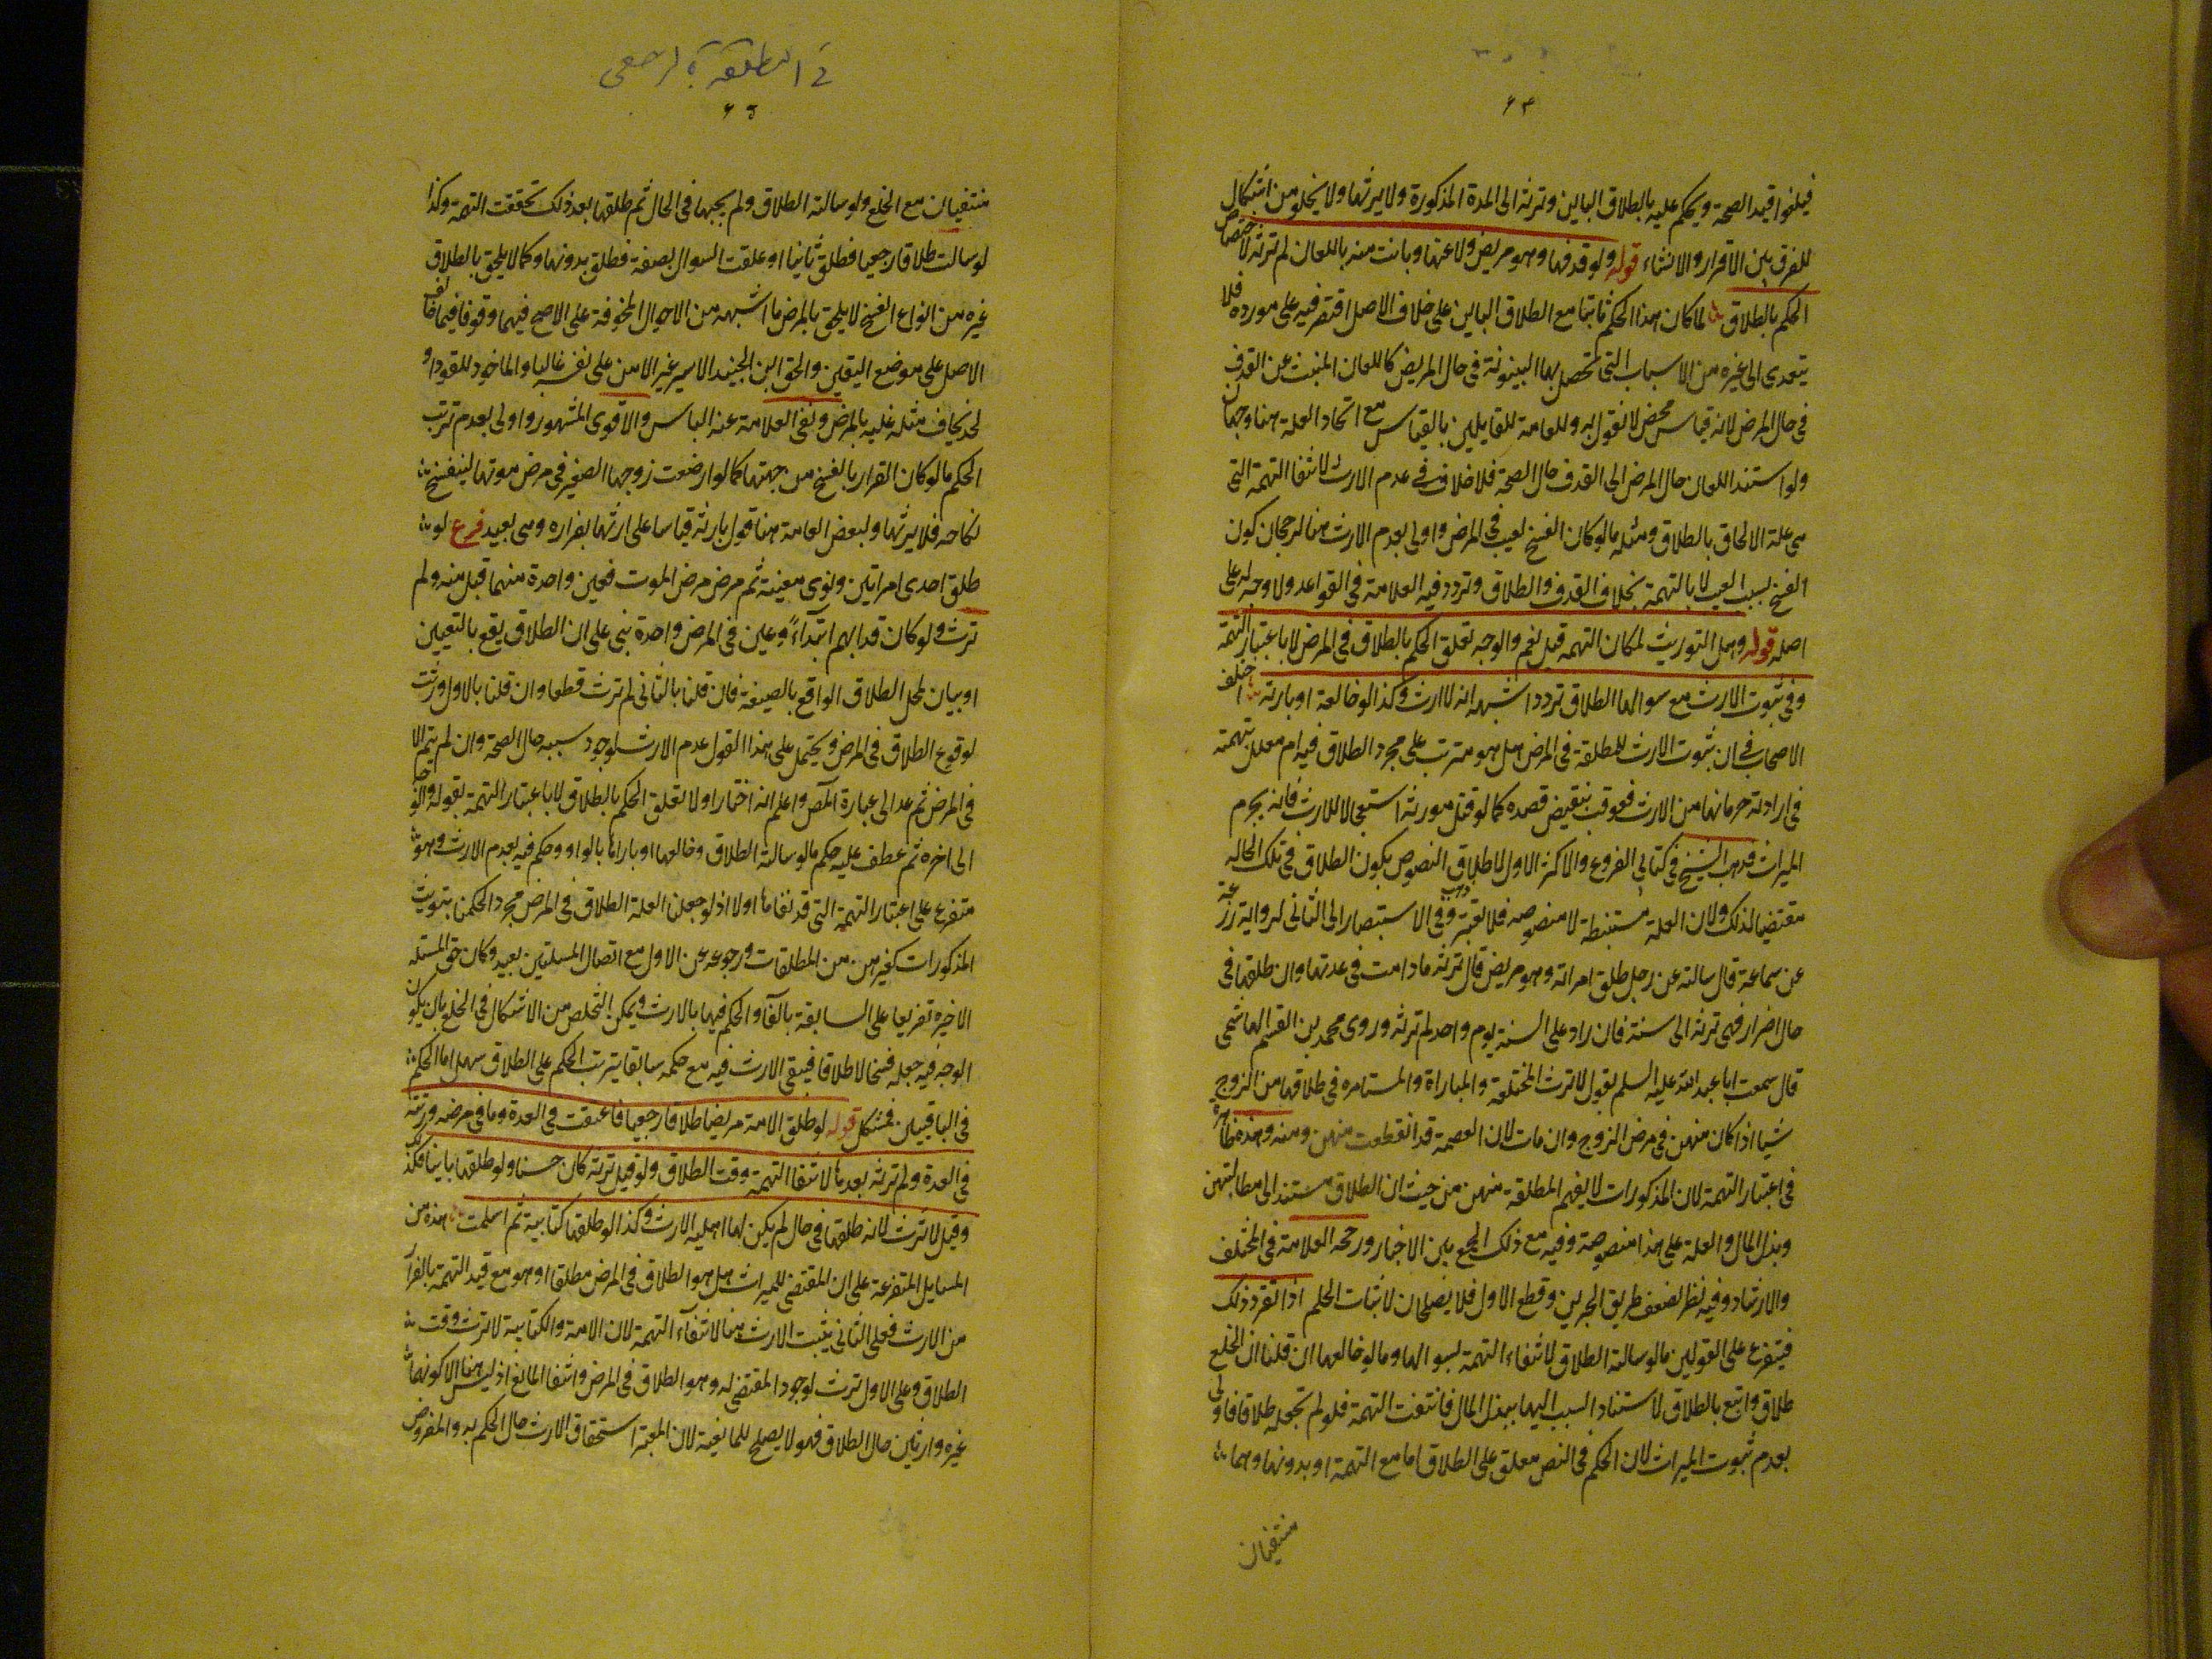 ٦٤
فيلغوا قيد الصحة ويحكم عليه بالطلاق البابن وترثه الى المدة المذكورة ولا يرثها ولا يخلو من اشكال
للفرق بين الاقرار والانشاء قوله ولو قذفها وهو مريض ولاعنها وبانت منه باللعان لم ترثه لاختصاص
الحكم بالطلاق لما كان هذا الحكم ثابتا مع الطلاق الباين على خلاف الاصل اقتصر فيه على مورده فلا
يتعدى الى غيره من الاسباب التى تحصل بها البينونة في حال المريض كاللعان المنبت عن القذف
في حال المرض لانه قياس محض لا نقول به وللعامة للقايلين بالقياس مع اتحاد العلة هنا وجهان
ولو استند اللعان حال المرض الى القذف حال الصحة فلا خلاف في عدم الارث لانتفا التهمة التي
هي علة الالحاق بالطلاق ومثله ما لو كان الفسخ لعيب في المرض واولى بعدم الارث هنا لرجحان كون
الفسخ بسبب العيب لا بالتهمة بخلاف القذف والطلاق وتردد فيه العلامة في القواعد ولا وجه له على
اصله قوله وهل التوريث لمكان التهمة قيل نعم والوجه تعلق الحكم بالطلاق في المرض لا باعتبار التهمة
وفي ثبوت الارث مع سوالها الطلاق تردد اشبهه انه لا ارث وكذا لو خالعته او بارته اختلف
الاصحاب في ان ثبوت الارث للمطلقة في المرض هل هو مترتب على مجرد الطلاق فيه ام معلل بتهمته
في ارادته حرمانها من الارث فعوقب بنقيض قصده كما لو قتل مورثه استعجالا للارث فانه يحرم
الميراث فذهب الشيخ في كتابي الفروع والاكثر الاول لاطلاق النصوص بكون الطلاق في تلك الحاله
مقتضيا لذلك ولان العلة مستنبطة لا منصوصه فلا تعتبر وذهب في الاستبصار الى الثاني لرواية زرعة
عن سماعة قال سالته عن رجل طلق امراته وهو مريض قال ترثه ما دامت في عدتها وان طلقها في
حال اضرار فهي ترثه الى سنة فان زاد على السنة يوم واحد لم ترثه وروى محمد بن القسم الهاشمى
قال سمعت ابا عبد الله عليه السلم يقول لا ترث المختلعة والمباراة والمستامره في طلاقها من الزوج
شيا اذا كان منهن في مرض الزوج وان مات لان العصمة قد انقطعت منهن ومنه وهذه ظاهرة
في اعتبار التهمة لان المذكورات لا يفهم المطلقة منهن من حيث ان الطلاق مستند الى مطالبتهن
وبذل المال والعلة على هذا منصوصة وفيه مع ذلك الجمع بين الاخبار ورجحه العلامة في المختلف
والارشاد وفيه نظر لضعف طريق الخبرين وقطع الاول فلا يصلحان لاثبات الحكم اذا تقرر ذلك
فيتفرع على القولين ما لو سالته الطلاق لانتفاء التهمة بسوالها وما لو خالعها ان قلنا ان الخلع
طلاق واتبع بالطلاق لاستناد السبب اليها ببذل المال فانتفت التهمة فلو لم نجعله طلاقا فاولى
بعدم ثبوت الميراث لان الحكم في النص معلق على الطلاق اما مع التهمة او بدونها وهما
منتفيان
في المطلقة
٦٥
منتفيان مع الخلع ولو سالته الطلاق ولم يجبها في الحال ثم طلقها بعد ذلك تحققت التهمة وكذا
لو سالت طلاقا رجعيا فطلق ثانيا او علقت السوال بصفة فطلق بدونها وكما لا يلحق بالطلاق
غيره من انواع الفسخ لا يلحق بالمرض ما اشبهه من الاحوال المخوفة على الاصح فيهما وقوفا فيما خالف
الاصل على موضع اليقين والحق ابن الجنيد الاسير غير الامن على نفسه غالبا والماخوذ للقود او
لحد يخاف مثله عليه بالمرض ونفى العلامة عنه الباس والاقوى المشهور واولى بعدم ترتب
الحكم ما لو كان الفرار بالفسخ من جهتها كما لو ارضعت زوجها الصغير في مرض موتها لينفسخ
نكاحه فلا يرثها ولبعض العامة هنا قول بارثه قياسا على ارثها بفراره وهي بعيد فرع لو
طلق احدى امراتين ونوى معينة ثم مرض مرض الموت فعين واحدة منهما قبل منه ولم
ترث ولو كان قد ابهم ابتداءً وعين في المرض واحدة بني على ان الطلاق يقع بالتعيين
او بيان لمحل الطلاق الواقع بالصيغة فان قلنا بالثاني لم ترث قطعا وان قلنا بالاول ورثت
لوقوع الطلاق في المرض ويحتمل على هذا القول عدم الارث لوجود سببه حال الصحة وان لم يتم الا
في المرض ثم عد الى عبارة المص واعلم انه اختار اولا تعلق الحكم بالطلاق لا باعتبار التهمة بقوله والوجه
الى اخره ثم عطف عليه حكم ما لو سالته الطلاق وخالعها او باراها بالواو وحكم فيه بعدم الارث وهو
متفرع على اعتبار التهمة التى قد نفاها اولا اذ لو جعلنا العلة الطلاق في المرض مجرد الحكمنا بتوريث
المذكورات كغيرهن من المطلقات ورجوعه عن الاول مع اتصال المسئلتين بعيد وكان حق المسئله
الاخيره تفريعا على السابقة بالفاء والحكم فيها بالارث ويمكن التخلص من الاشكال في الخلع بان يكون
الوجه فيه جعله فسخا لا طلاقا فيبقى الارث فيه مع حكمه سابقا بترتب الحكم على الطلاق سهل اما الحكم
في الباقيين فمشكل قوله لو طلق الامة مريضا طلاقا رجعيا فاعتقت في العدة ومات في مرضه ورثته
في العدة ولم ترثه بعدها لانتفا التهمة وقت الطلاق ولو قيل ترثه كان حسنا ولو طلقها باينا فكذلك
وقيل لا ترث لانه طلقها في حال لم يكن لها اهلية الارث وكذا لو طلقها كتابية ثم اسلمت هذه من
المسايل المتفرعة على ان المقتضي للميراث هل هو الطلاق في المرض مطلقا او هو مع قيد التهمة بالفرار
من الارث فعلى الثاني يثبت الارث هنا لانتفاء التهمة لان الامة والكتابية لا ترث وقت
الطلاق وعلى الاول ترث لوجود المقتضي له وهو الطلاق في المرض وانتفا المانع اذ ليس هنا الا كونهما
غير وارثين حال الطلاق فهو لا يصلح للمانعية لان المعتبر استحقاق الارث حال الحكم به والمفروض